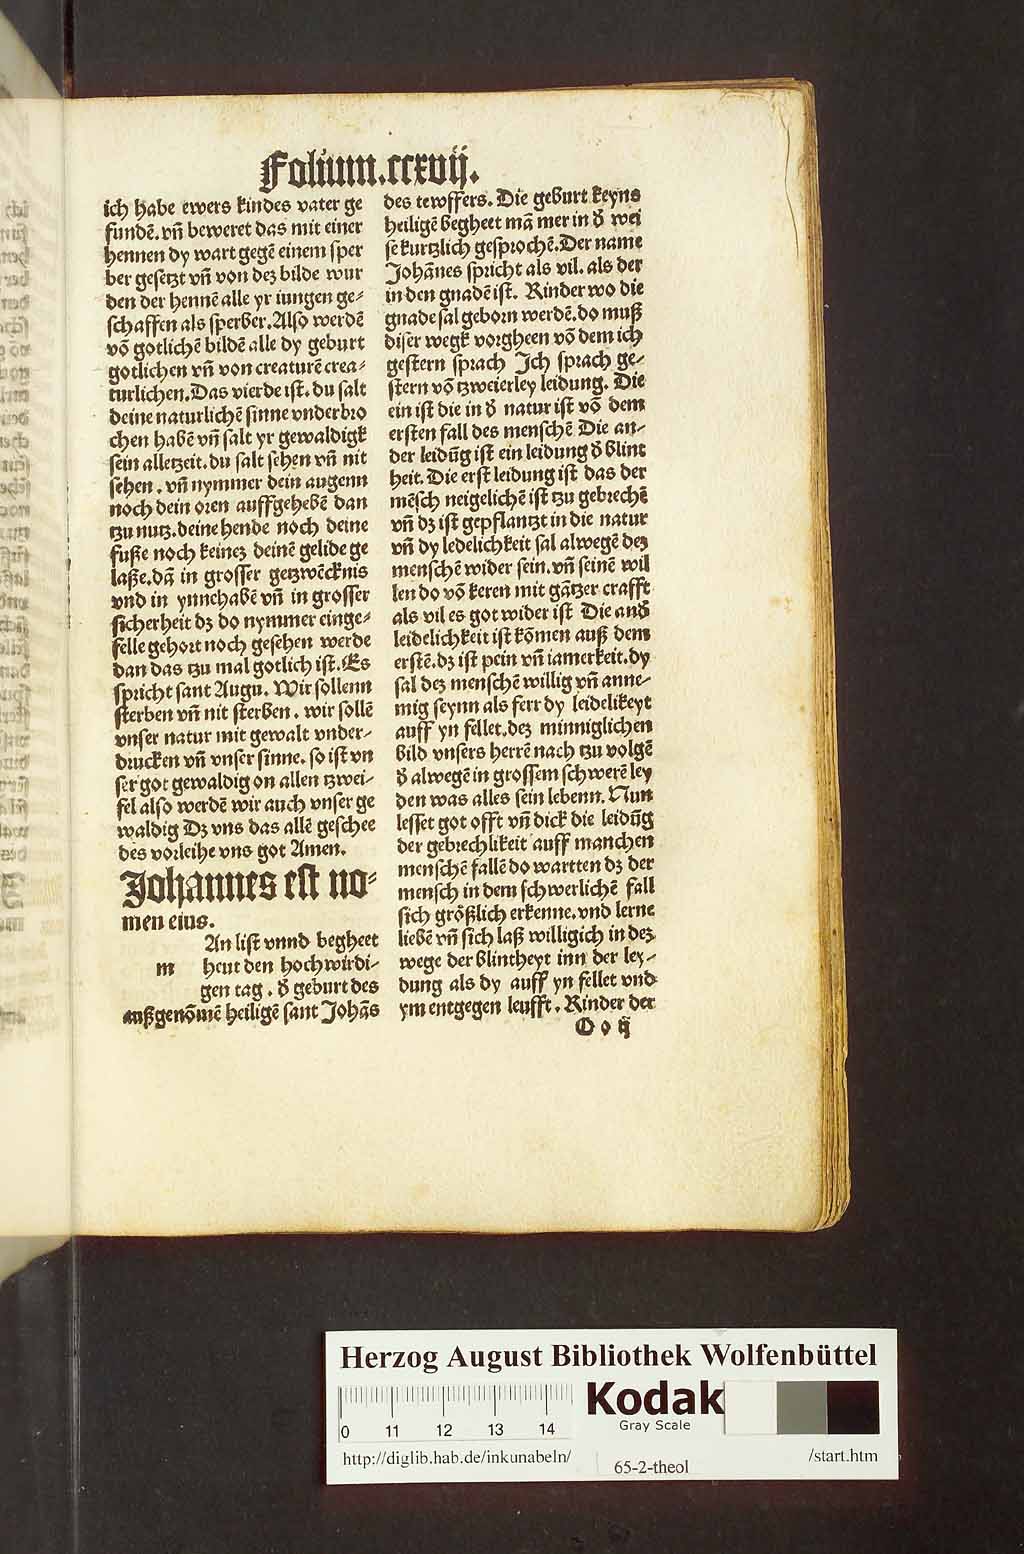 Folium.ccxvij.
ich habe ewers kindes vater ge
fundē. vn̄ beweret das mit einer
hennen dy wart gegē einem sper
ber gesetzt vn̄ von dez bilde wur
den der hennē alle yr iungen ge⸗
schaffen als sperber. Also werdē
vō gotlichē bildē alle dy geburt
gotlichen vn̄ von creaturē crea⸗
turlichen. Das vierde ist. du salt
deine naturlichē sinne vnderbro
chen habē vn̄ salt yr gewaldigk
sein alletzeit. du salt sehen vn̄ nit
sehen. vn̄ nymmer dein augenn
noch dein oren auffgehebē dan
tzu nutz. deine hende noch deine
fuße noch keinez deinē gelide ge
laße. dā in grosser getzwēcknis
vnd in ynnehabē vn̄ in grosser
sicherheit dz do nymmer einge⸗
felle gehort noch gesehen werde
dan das tzu mal gotlich ist. Es
spricht sant Augu. Wir sollenn
sterben vn̄ nit sterben. wir sollē
vnser natur mit gewalt vnder⸗
drucken vn̄ vnser sinne. so ist vn
ser got gewaldig on allen tzwei⸗
fel also werdē wir auch vnser ge
waldig Dz vns das allē geschee
des vorleihe vns got Amen.
Johannes est no⸗
men eius.
An list vnnd begheet
m heut den hochwirdi⸗
gen tag. d̛ geburt des
außgenōmē heiligē sant Johās
des tewffers. Die geburt keyns
heiligē begheet mā mer in d̛ wei
se kurtzlich gesprochē. Der name
Johānes spricht als vil. als der
in den gnadē ist. Kinder wo die
gnade sal geborn werdē. do muß
diser wegk vorgheen vō dem ich
gestern sprach Jch sprach ge⸗
stern vō tzweierley leidung. Die
ein ist die in d̛ natur ist vō dem
ersten fall des menschē Die an⸗
der leidūg ist ein leidung d̛ blint
heit. Die erst leidung ist das der
mēsch neigelichē ist tzu gebrechē
vn̄ dz ist gepflantzt in die natur
vn̄ dy ledelichkeit sal alwegē dez
menschē wider sein. vn̄ seinē wil
len do vō keren mit gātzer crafft
als vil es got wider ist Die and̛
leidelichkeit ist kōmen auß dem
erstē. dz ist pein vn̄ iamerkeit. dy
sal dez menschē willig vn̄ anne⸗
mig seynn als ferr dy leidelikeyt
auff yn fellet. dez minniglichen
bild vnsers herrē nach tzu volgē
d̛ alwegē in grossem schwerē ley
den was alles sein lebenn. Nun
lesset got offt vn̄ dick die leidūg
der gebrechlikeit auff manchen
menschē fallē do wartten dz der
mensch in dem schwerlichē fall
sich größlich erkenne. vnd lerne
liebē vn̄ sich laß willigich in dez
wege der blintheyt inn der ley⸗
dung als dy auff yn fellet vnd
ym entgegen leufft. Kinder der
O o ij
Herzog August Bibliothek Wolfenbüttel
0 11 12 13 14
Kodak
Gray Scale
http://diglib.hab.de/inkunabeln/
65-2-theol
/start.htm